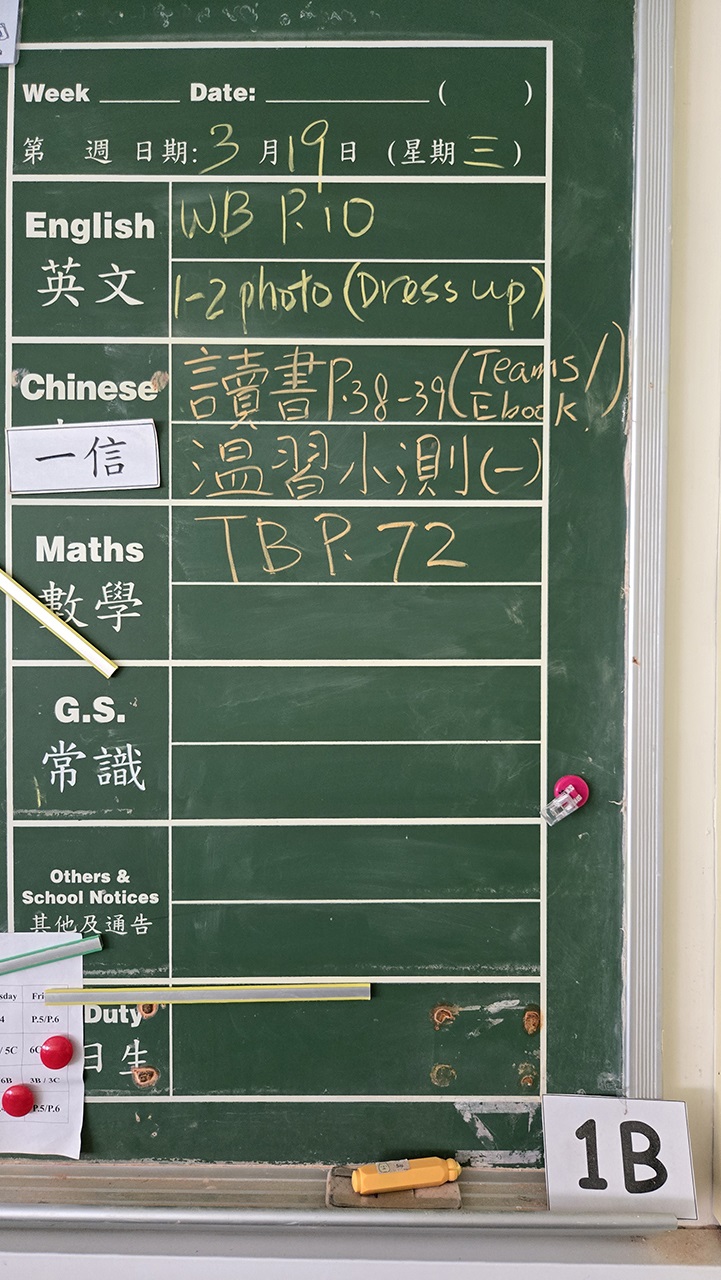 Week ______ Date: ____________ ( )
第 週 日期: 3 月 19 日 (星期 三)
English
英文
WB P.10
1-2 photo (Dress up)
Chinese
一信
讀書 P.38-39 (Teams/
Ebook)
温習小測(一)
Maths
數學
TB P.72
G.S.
常識
Others &
School Notices
其他及通告
Duty
日生
sday Fri
4 P.5/P.6
/ 5C 6C
6B 3B / 3C
P.5/P.6
1B